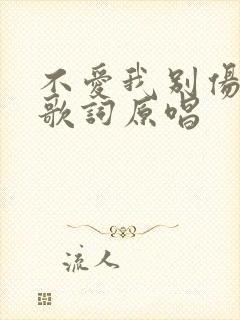 不愛我别傷
歌詞原唱
流人